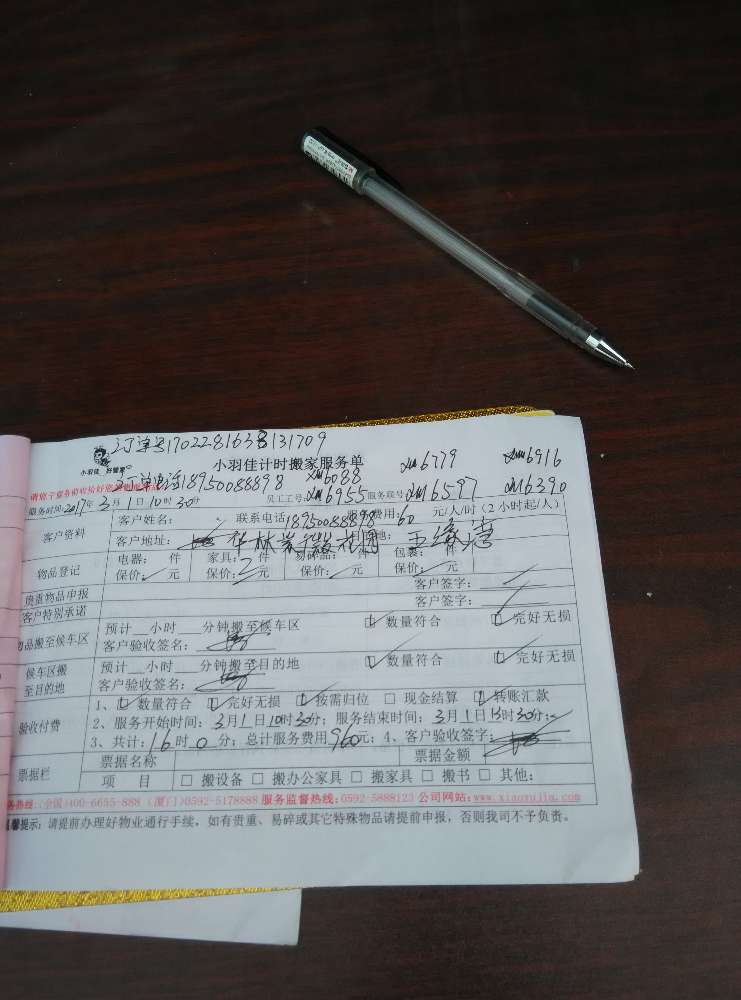 订单号170228163131709
小羽佳 好管家
小羽佳计时搬家服务单
xm6779 xm6916
订单电话18950088898 xm6088
服务时间:2017年3月1日10时30分 员工工号:xm6955 服务联号 xm6597 xm6390
客户资料
客户姓名: 联系电话18950088898 服务费用:60元/人/时(2小时起/人)
客户地址:
物品登记
电器: 件 家具: 件 易碎品: 件 包裹: 件
保价: 元 保价: 元 保价: 元 保价: 元
贵重物品申报 客户签字:
客户特别承诺 客户签字:
物品搬至候车区
预计__小时__分钟搬至候车区 数量符合 完好无损
客户验收签名:
候车区搬至目的地
预计__小时__分钟搬至目的地 数量符合 完好无损
客户验收签名:
验收付费
1、数量符合 完好无损 按需归位 现金结算 转账汇款
2、服务开始时间:3月1日10时30分;服务结束时间:3月1日13时30分;
3、共计:16时0分;总计服务费用960元;4、客户验收签字:
票据栏
票据名称 票据金额
项 目 搬设备 搬办公家具 搬家具 搬书 其他:
服务热线:(全国)400-6655-888 (厦门)0592-5178888 服务监督热线:0592-5888123 公司网站:www.xiaoyujia.com
温馨提示:请提前办理好物业通行手续,如有贵重、易碎或其它特殊物品请提前申报,否则我司不予负责。